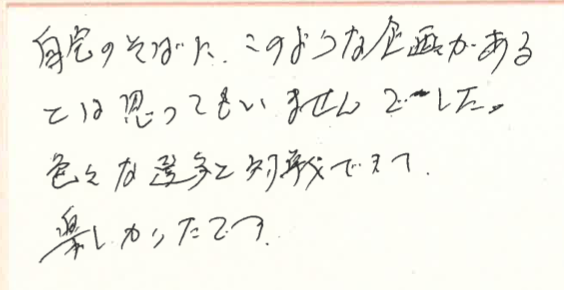 自宅のそばに、このような企画がある
とは思ってもいませんでした。
色々な選手と対戦できて、
楽しかったです。